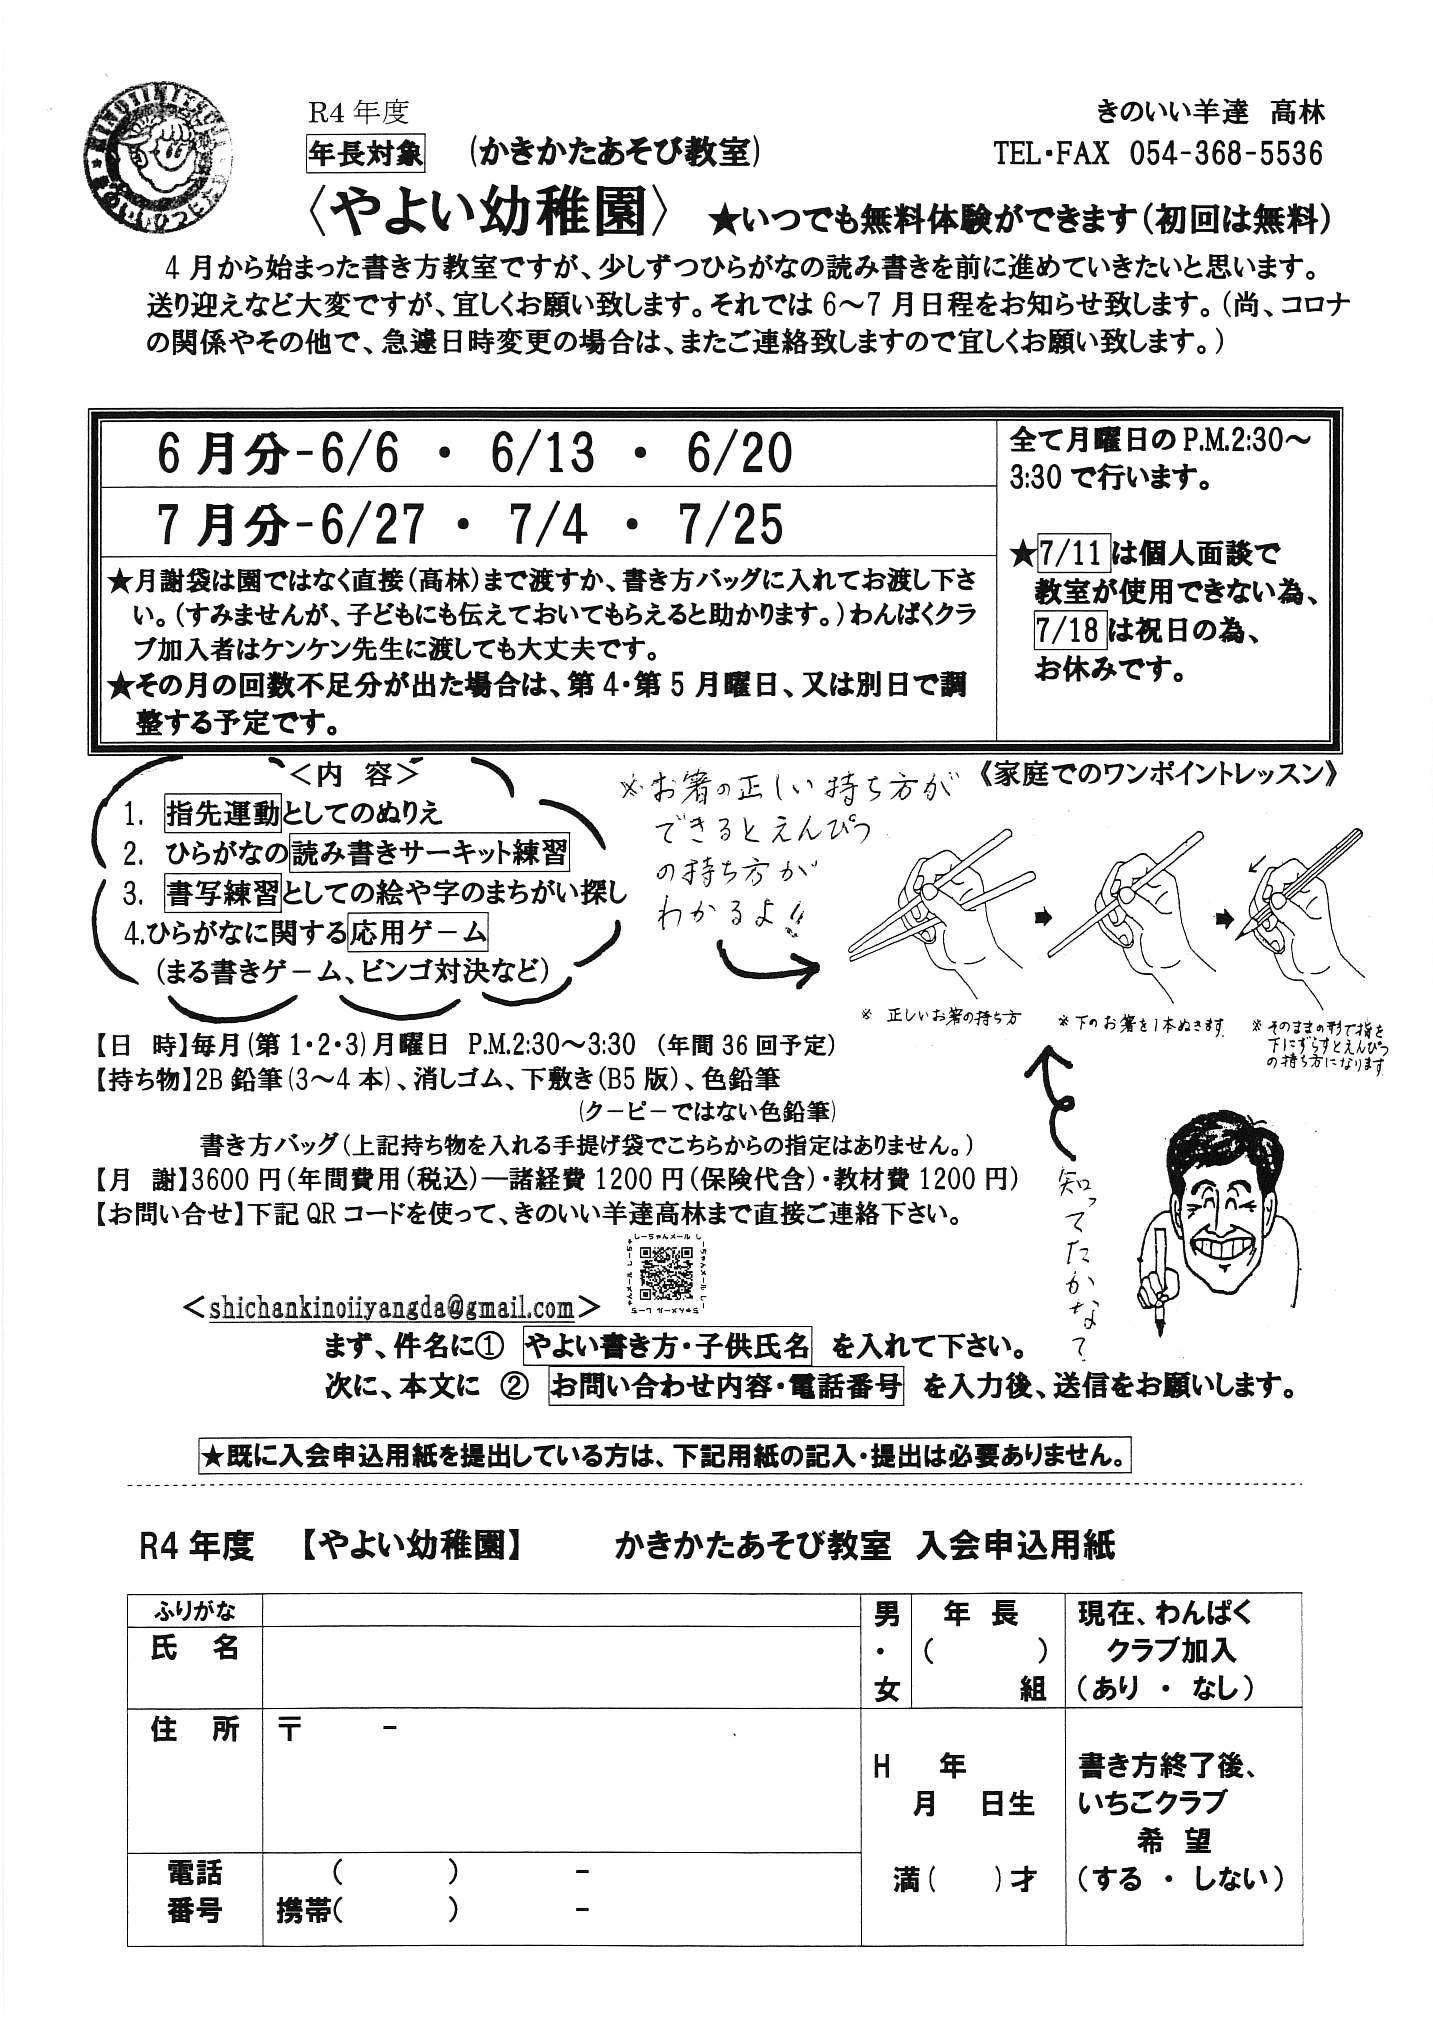 R4 年度
きのいい羊達 高林
年長対象 (かきかたあそび教室)
TEL・FAX 054-368-5536
〈やよい幼稚園〉 ★いつでも無料体験ができます(初回は無料)
4 月から始まった書き方教室ですが、少しずつひらがなの読み書きを前に進めていきたいと思います。
送り迎えなど大変ですが、宜しくお願い致します。それでは 6～7 月日程をお知らせ致します。(尚、コロナ
の関係やその他で、急遽日時変更の場合は、またご連絡致しますので宜しくお願い致します。)
6 月分-6/6 ・ 6/13 ・ 6/20
7 月分-6/27 ・ 7/4 ・ 7/25
★月謝袋は園ではなく直接(高林)まで渡すか、書き方バッグに入れてお渡し下さ
い。(すみませんが、子どもにも伝えておいてもらえると助かります。)わんぱくクラ
ブ加入者はケンケン先生に渡しても大丈夫です。
★その月の回数不足分が出た場合は、第 4・第 5 月曜日、又は別日で調
整する予定です。
全て月曜日の P.M.2:30～
3:30 で行います。
★7/11 は個人面談で
教室が使用できない為、
7/18 は祝日の為、
お休みです。
＜内 容＞
1. 指先運動としてのぬりえ
2. ひらがなの読み書きサーキット練習
3. 書写練習としての絵や字のまちがい探し
4.ひらがなに関する応用ゲーム
(まる書きゲーム、ビンゴ対決など)
※お箸の正しい持ち方が
できるとえんぴつ
の持ち方が
わかるよ!!
《家庭でのワンポイントレッスン》
※ 正しいお箸の持ち方
※ 下のお箸を1本ぬきます
※ そのままの形で指を
下にずらすとえんぴつ
の持ち方になります
【日 時】毎月(第 1・2・3)月曜日 P.M.2:30～3:30 (年間 36 回予定)
【持ち物】2B 鉛筆(3～4 本)、消しゴム、下敷き(B5 版)、色鉛筆
(クーピーではない色鉛筆)
書き方バッグ(上記持ち物を入れる手提げ袋でこちらからの指定はありません。)
【月 謝】3600 円(年間費用(税込)―諸経費 1200 円(保険代含)・教材費 1200 円)
【お問い合せ】下記 QR コードを使って、きのいい羊達高林まで直接ご連絡下さい。
知ってたかなて
しーちゃんメール
＜shichankinoiiyangda@gmail.com＞
まず、件名に① やよい書き方・子供氏名 を入れて下さい。
次に、本文に ② お問い合わせ内容・電話番号 を入力後、送信をお願いします。
★既に入会申込用紙を提出している方は、下記用紙の記入・提出は必要ありません。
R4 年度 【やよい幼稚園】 かきかたあそび教室 入会申込用紙
ふりがな
氏 名
男
・
女
年 長
( )
組
現在、わんぱく
クラブ加入
(あり ・ なし)
住 所
〒 -
H 年
月 日生
満( )才
書き方終了後、
いちごクラブ
希 望
(する ・ しない)
電話
番号
( ) -
携帯( ) -